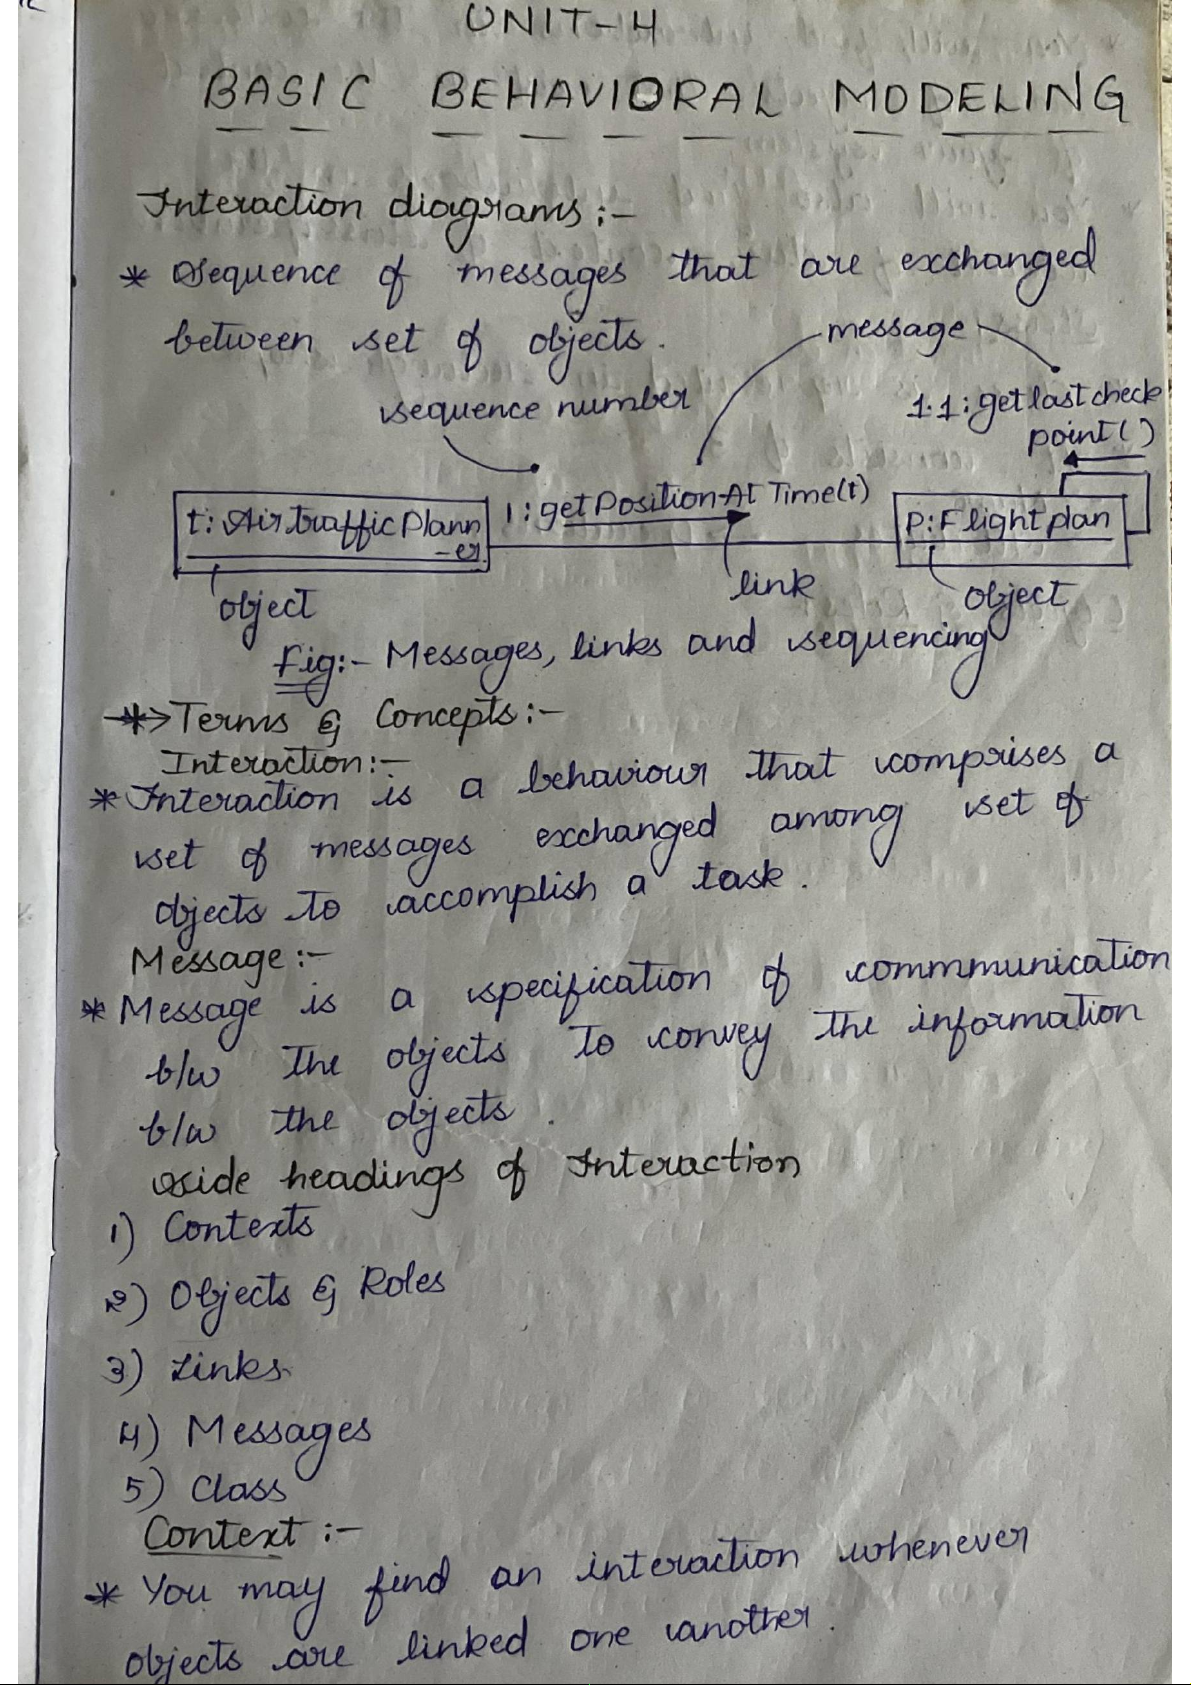 UNIT-4
BASIC BEHAVIORAL MODELING
Interaction diagrams :-
* Sequence of messages that are exchanged
between set of objects.
message
sequence number
1.1: getlastcheck
point()
1: getPositionAtTime(t)
t: AirtrafficPlann
-er
P: Flightplan
object
link
object
Fig:- Messages, links and sequencing
*> Terms & Concepts:-
Interaction:-
* Interaction is a behaviour that comprises a
set of messages exchanged among set of
objects to accomplish a task.
Message:-
* Message is a specification of commmunication
b/w the objects to convey the information
b/w the objects.
side headings of Interaction
1) Contexts
2) Objects & Roles
3) Links
4) Messages
5) Class
Context :-
* You may find an interaction whenever
objects are linked one another.